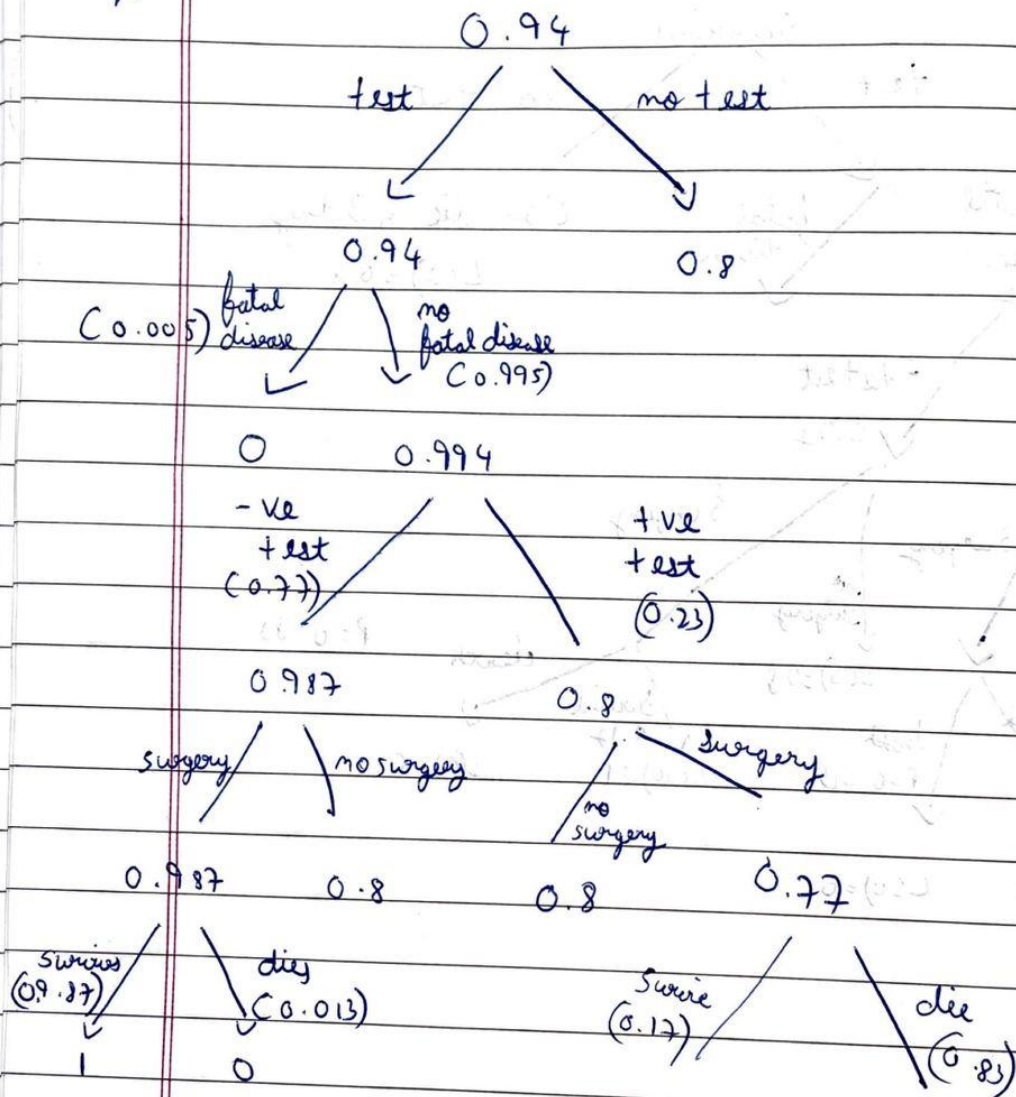 0.94
test no test
0.94 0.8
(0.005) fatal disease
no fatal disease
(0.995)
0 0.994
-ve
test
(0.77)
+ve
test
(0.23)
0.987 0.8
surgery no surgery
no surgery
surgery
0.987 0.8 0.8 0.77
(0.9.87)
dies
(0.013)
(0.17)
die
(0.83)
1 0